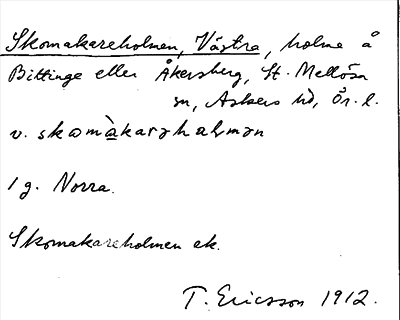 Skomakareholmen, Västra, holme å
Bittinge eller Åkersberg, St. Mellösa
sn, Askers hd, Ör. l.
v. skomàkarəhalmən
1 g. Norra.
Skomakareholmen ek.
T. Ericsson 1912.